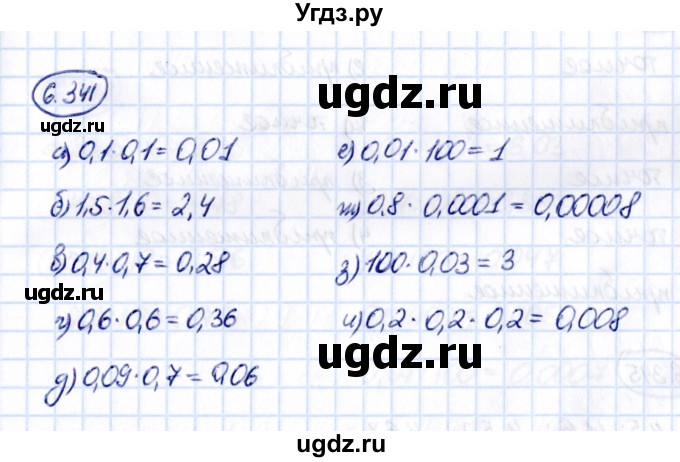 Угдз.ру
6.341
ugdz.ru
ugdz.ru
а) 0,1·0,1=0,01
б) 1,5·1,6=2,4
в) 0,4·0,7=0,28
ugdz.ru
г) 0,6·0,6=0,36
д) 0,09·0,7=0,06
е) 0,01·100=1
ugdz.ru
ж) 0,8·0,0001=0,00008
з) 100·0,03=3
и) 0,2·0,2·0,2=0,008
ugdz.ru
ugdz.ru